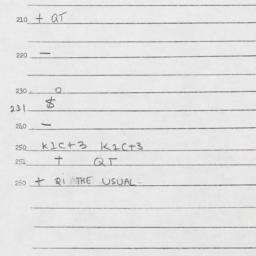 210 + QT
220 —
230 o
231 $
240 —
250 K1C+3 K1C+3
252 + QT
260 + Qi THE USUAL -